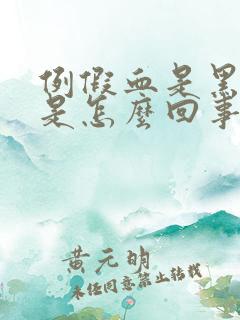 例假血是黑
是怎麼回事
黄元明
未经同意禁止转载